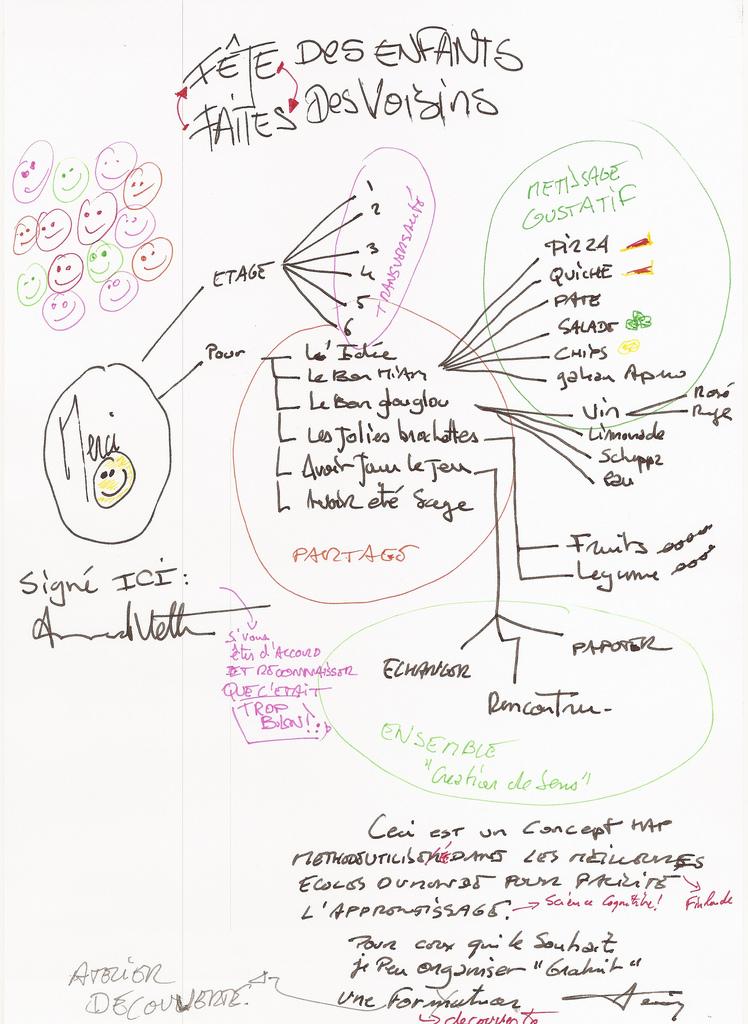 FÊTE DES ENFANTS
FAITES Des Voisins
METISSAGE
GUSTATIF
1
2
3
4
5
6
TRANSVERSALITÉ
ETAGE
PIZZA
QUICHE
PATE
SALADE
CHIPS
Pour
L'Idée
Le Bon Miam
Le Bon glouglou
Les Jolies brochettes
Avoir Jouer le Jeu
Avoir été Sage
PARTAGES
Vin
Rosé
Rouge
Limonade
Schepps
Eau
Merci
Fruits
Legume
Signé ICI:
S'vous
êtes d'ACCORD
ET RECONNAISSER
QUE C'ETAIT
TROP
BON!
ECHANGER
PAPOTER
Rencontrer
ENSEMBLE
"Creation de Sens"
Ceci est un Concept MAP
METHODE UTILISÉ DANS LES MEILLEURES
ECOLES DU MONDE POUR FACILITÉ
L'APPRENTISSAGE.
Science Cognitive!
Finlande
Pour ceux qui le Souhaite
je Peu organiser "Gratuit"
une Formation
decouverte
ATELIER
DECOUVERTE.